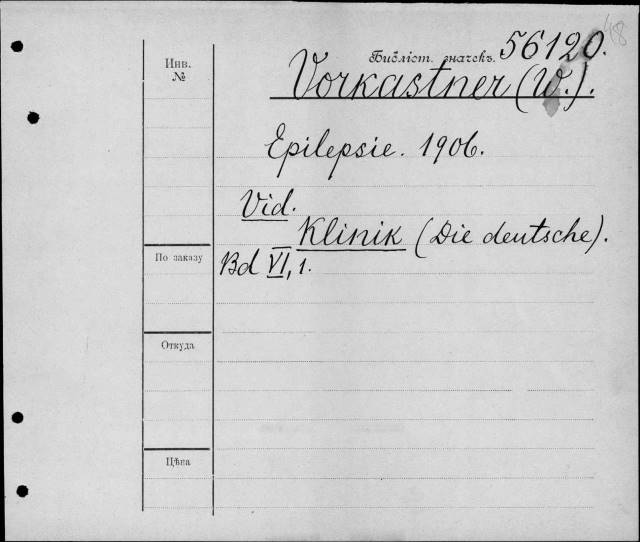 48
Библіот. значекъ. 56120.
Инв.
№
Vorkastner (W.).
Epilepsie. 1906.
Vid.
Klinik (Die deutsche).
По заказу
Bd VI, 1.
Откуда
Цѣна